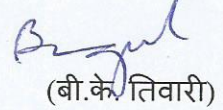 (बी.के. तिवारी)